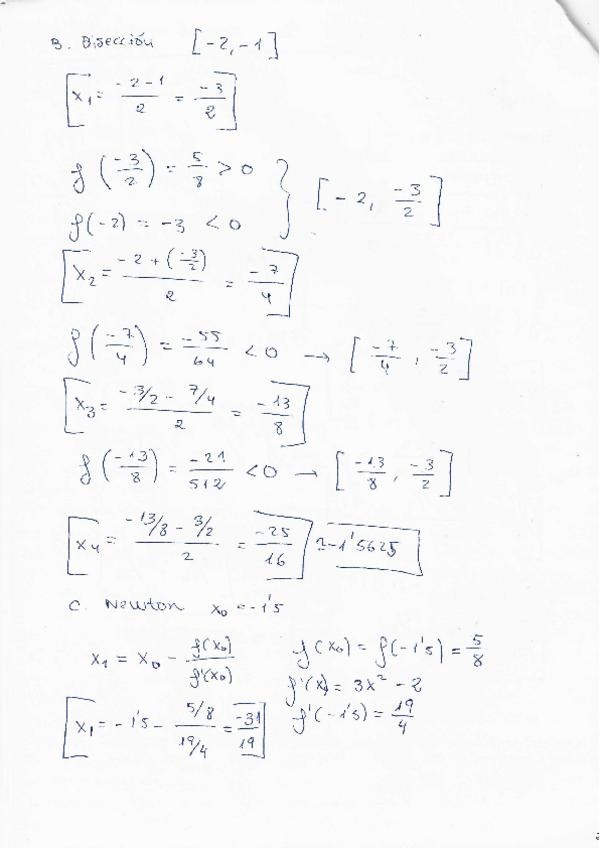 B. Bisección [-2, -1]
[x₁ = (-2-1)/2 = -3/2]
f(-3/2) = 5/8 > 0
f(-2) = -3 < 0 } [-2, -3/2]
[x₂ = (-2 + (-3/2))/2 = -7/4]
f(-7/4) = -55/64 < 0 → [-7/4, -3/2]
[x₃ = (-3/2 - 7/4)/2 = -13/8]
f(-13/8) = -21/512 < 0 → [-13/8, -3/2]
[x₄ = (-13/8 - 3/2)/2 = -25/16] = -1'5625
C. Newton x₀ = -1'5
x₁ = x₀ - f(x₀)/f'(x₀) f(x₀) = f(-1'5) = 5/8
f'(x) = 3x² - 2
[x₁ = -1'5 - (5/8)/(19/4) = -31/19] f'(-1'5) = 19/4